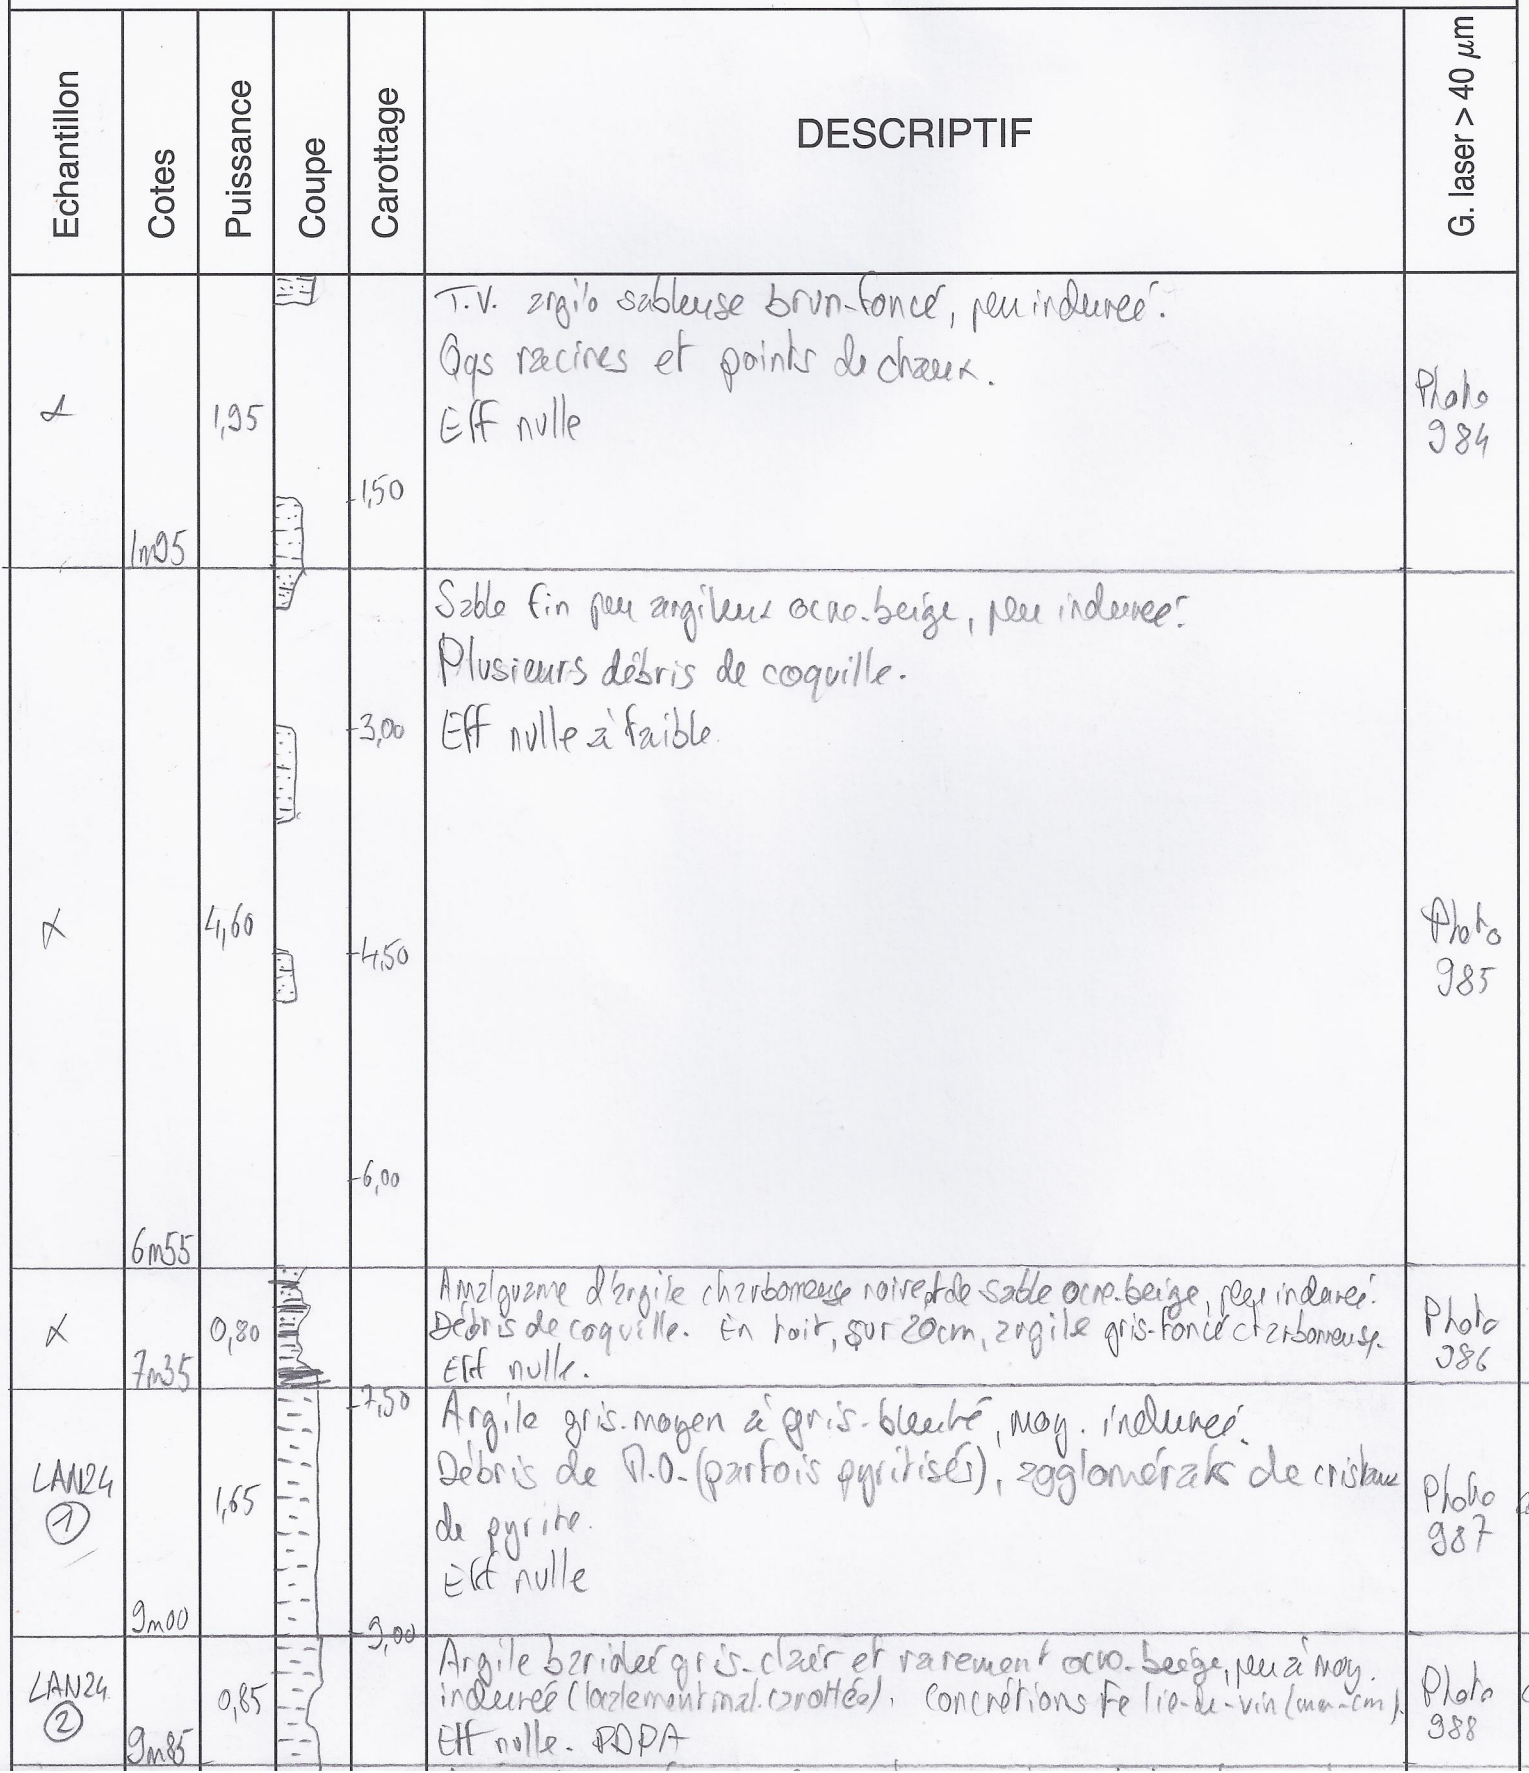 Echantillon Cotes Puissance Coupe Carottage DESCRIPTIF G. laser > 40 µm
T.V. argilo sableuse brun-foncé, peu indurée.
Qqs racines et points de chaux.
Eff nulle
1,95
Photo
984
1,50
1m95
Sable fin peu argileux ocre-beige, peu indurée.
Plusieurs débris de coquille.
3,00
Eff nulle à faible
4,60
Photo
985
4,50
6,00
6m55
Amalguame d'argile charbonneuse noire et de sable ocre-beige, peu indurée.
Débris de coquille. En toit, sur 20cm, argile gris-foncé charbonneuse.
Eff nulle.
0,80
Photo
986
7m35
7,50
Argile gris-moyen à gris-bleuté, moy. indurée.
Débris de M.O. (parfois pyritisés), agglomérats de cristaux
de pyrite.
Eff nulle
LAN24
1
1,65
Photo
987
9m00
9,00
Argile bariolée gris-clair et rarement ocre-beige, peu à moy.
indurée (localement mal carottée). Concrétions Fe lie-de-vin (mm-cm).
Eff nulle. PDPA
LAN24
2
0,85
Photo
988
9m85